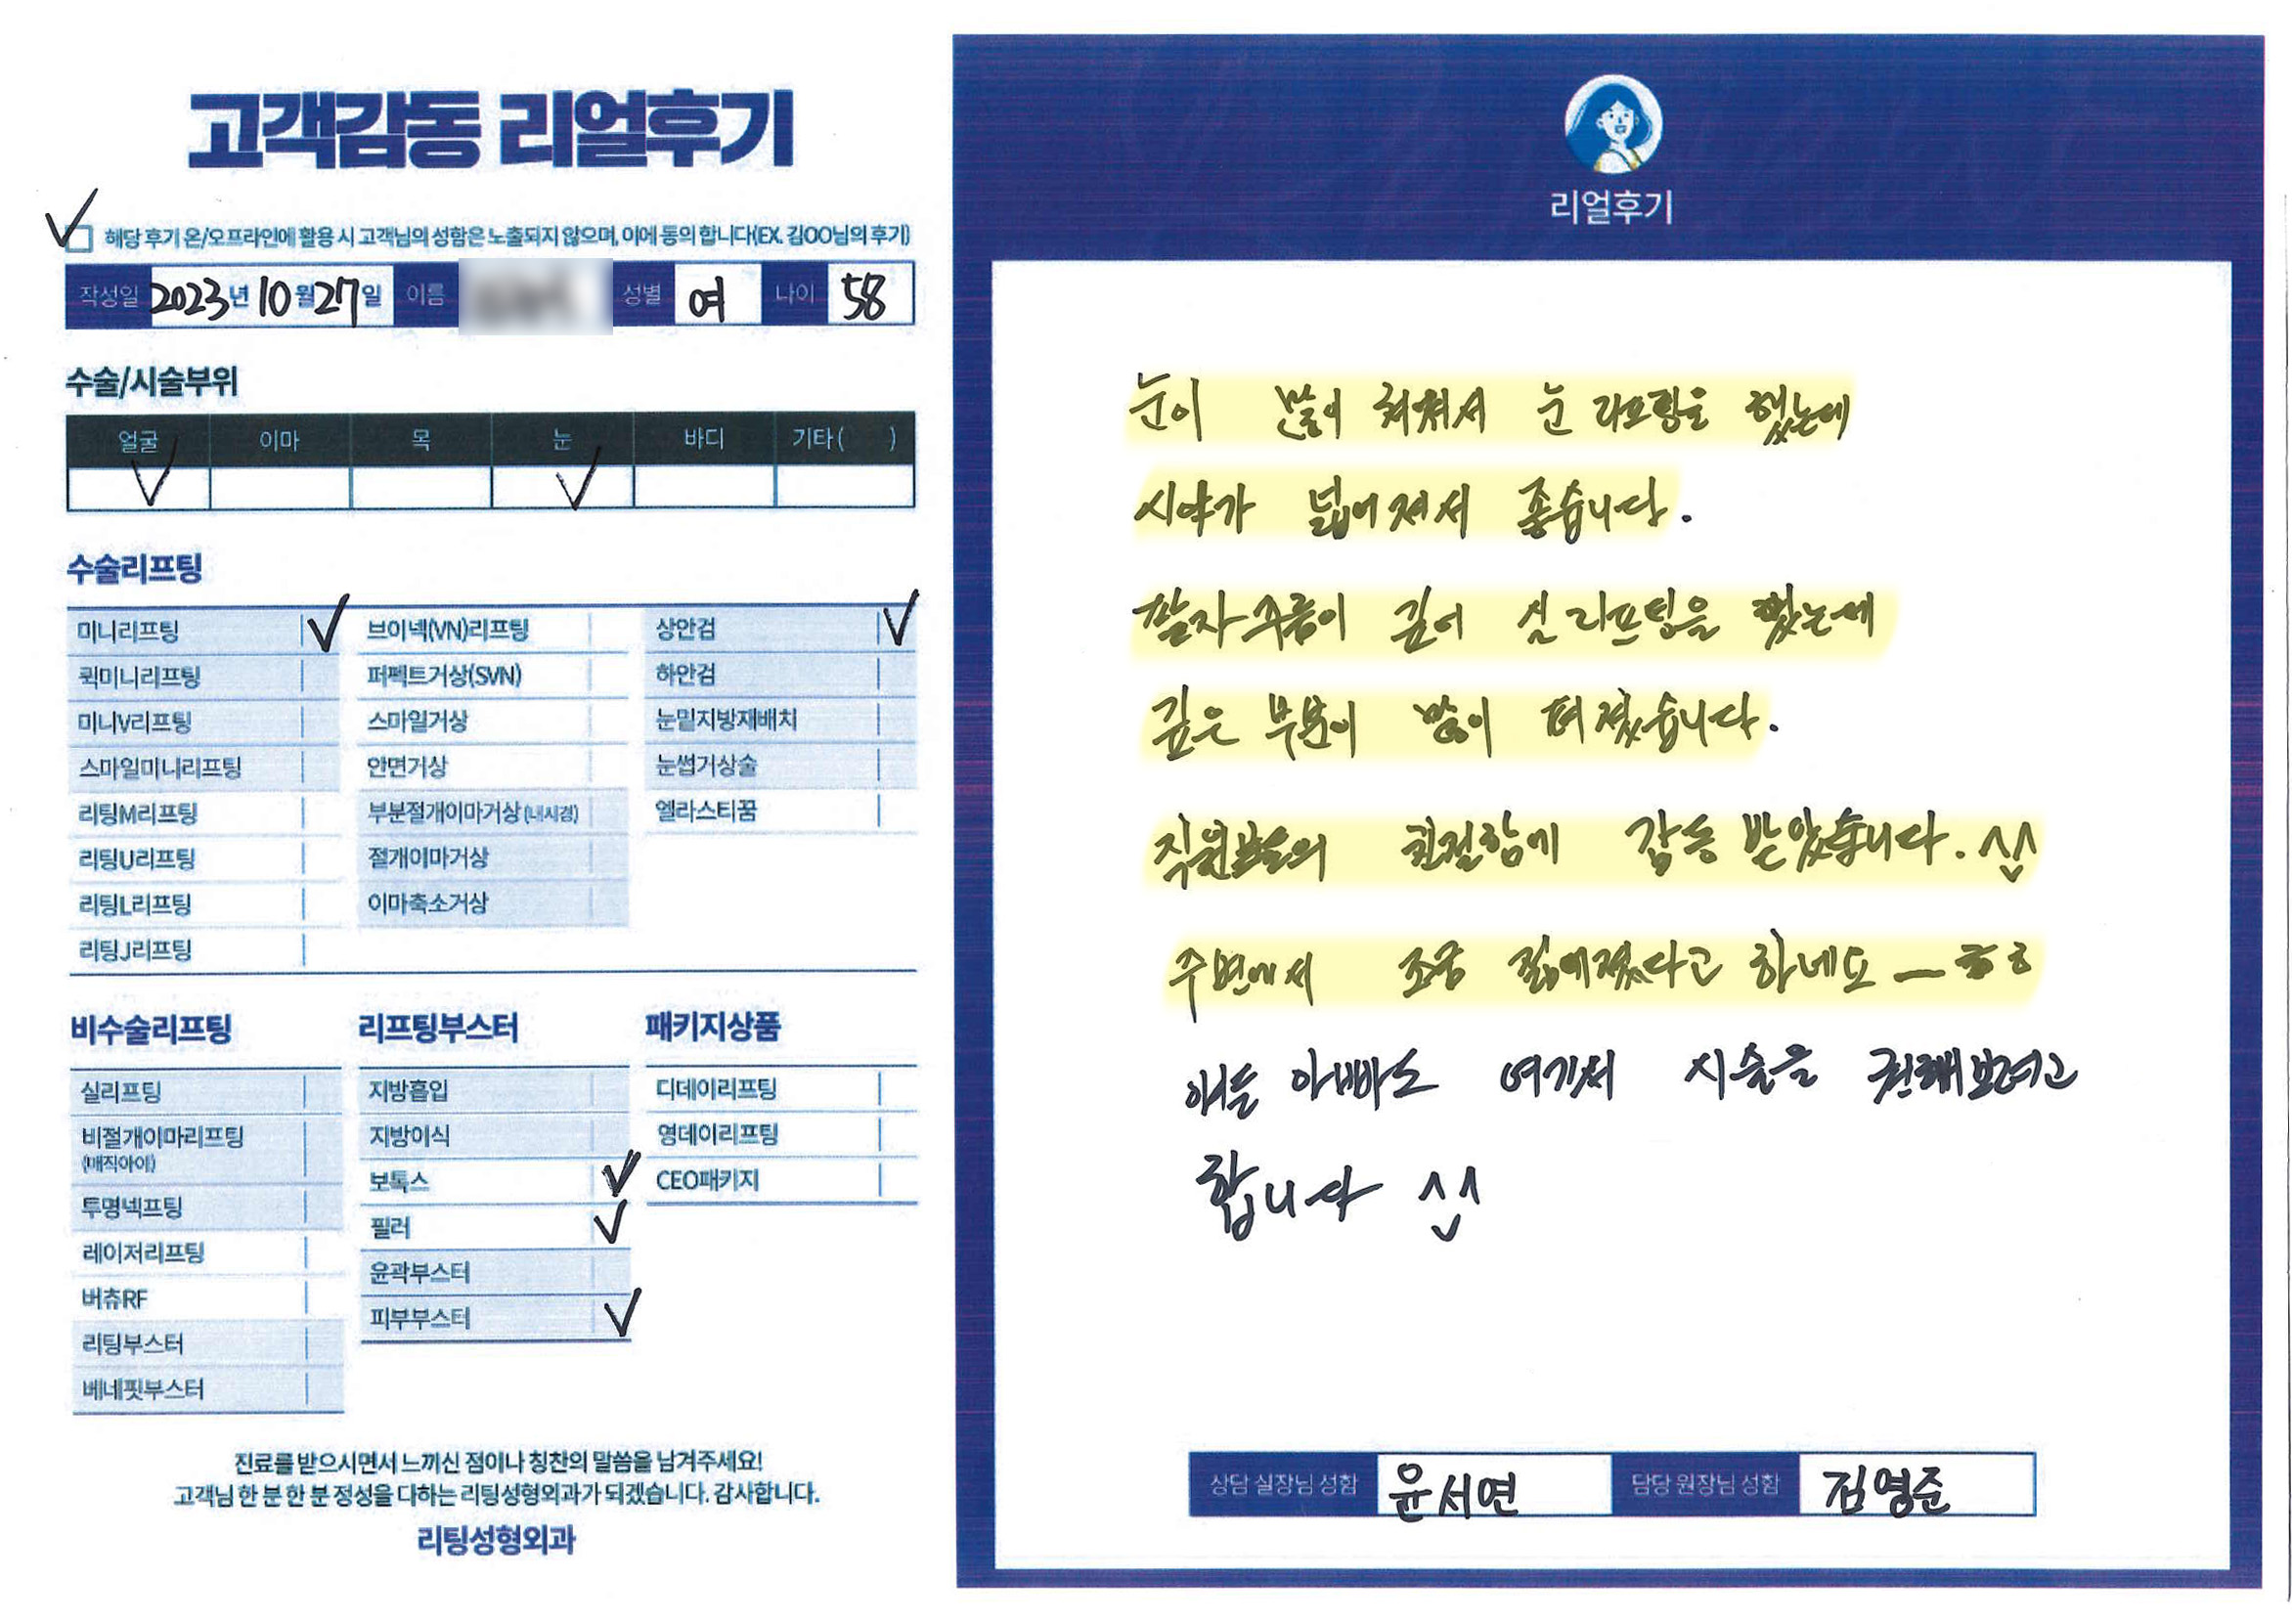 고객감동 리얼후기
해당 후기 온/오프라인에 활용 시 고객님의 성함은 노출되지 않으며, 이에 동의 합니다(EX. 김OO님의 후기)
작성일 2023년 10월 27일 이름 성별 여 나이 58
수술/시술부위
얼굴 이마 목 눈 바디 기타( )
수술리프팅
미니리프팅 브이넥(VN)리프팅 상안검
퀵미니리프팅 퍼펙트거상(SVN) 하안검
미니V리프팅 스마일거상 눈밑지방재배치
스마일미니리프팅 안면거상 눈썹거상술
리팅M리프팅 부분절개이마거상(내시경) 엘라스티꿈
리팅U리프팅 절개이마거상
리팅L리프팅 이마축소거상
리팅J리프팅
비수술리프팅 리프팅부스터 패키지상품
실리프팅 지방흡입 디데이리프팅
비절개이마리프팅 지방이식 영데이리프팅
(매직아이)
보톡스 CEO패키지
투명넥프팅 필러
레이저리프팅 윤곽부스터
버츄RF 피부부스터
리팅부스터
베네핏부스터
진료를 받으시면서 느끼신 점이나 칭찬의 말씀을 남겨주세요!
고객님 한 분 한 분 정성을 다하는 리팅성형외과가 되겠습니다. 감사합니다.
리팅성형외과
리얼후기
눈이 많이 쳐져서 눈 리프팅을 했는데
시야가 넓어져서 좋습니다.
팔자주름이 깊어 실 리프팅을 했는데
깊은 부분이 많이 펴졌습니다.
친절함에 감동 받았습니다. ^^
주변에서 조금 젊어졌다고 하네요 ㅡ ㅎㅎ
애들 아빠도 여기서 시술을 권해보려고
합니다 ^^
상담 실장님 성함 윤서연 담당 원장님 성함 김영준